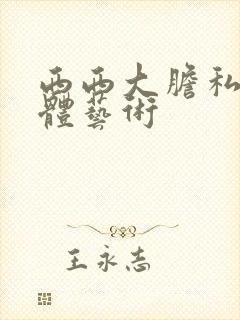 西西大膽私
體藝術
王永志